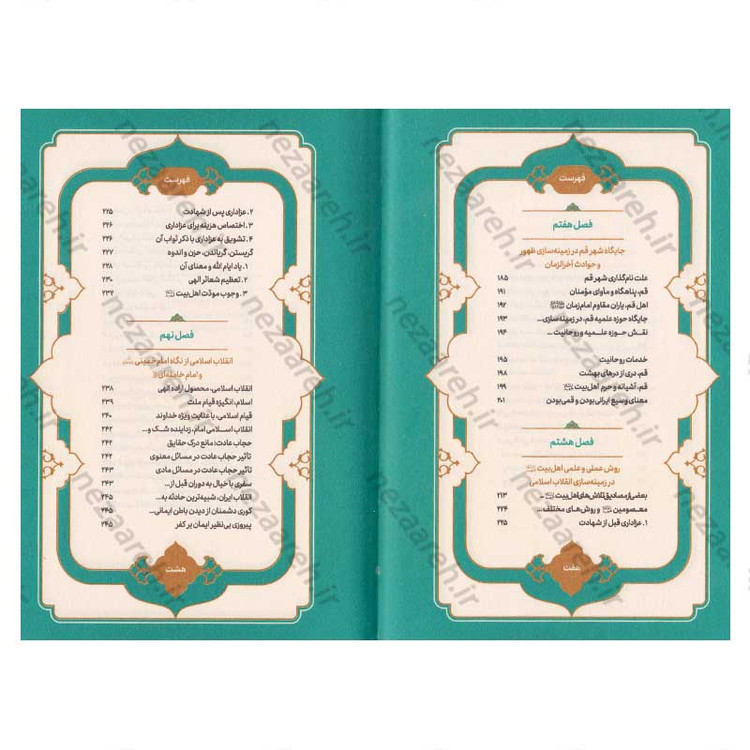 فهرست
فصل هفتم
جایگاه شهر قم در زمینه‌سازی ظهور
و حوادث آخرالزمان
علت نام‌گذاری شهر قم ۱۸۵
قم، پناهگاه و مأوای مؤمنان ۱۹۱
اهل قم، یاران مقاوم امام زمان ۱۹۲
جایگاه حوزه علمیه قم، در زمینه‌سازی... ۱۹۳
نقش حـوزه علـمـیه و روحانیت ... ۱۹۴
خدمات روحانیت ۱۹۵
قم، دری از درهای بهشت ۱۹۸
قم، آشیانه و حرم اهل‌بیت ۱۹۹
معنای وسیع ایرانی بودن و قمی بودن ۲۰۱
فصل هشتم
روش عملی و علمی اهل‌بیت
در زمینه‌سازی انقلاب اسلامی
بعضی از مصادیق تلاش‌های اهل‌بیت ... ۲۱۳
معـصومین و روش‌های مختلف... ۲۲۴
۱. عزاداری قبل از شهادت ۲۲۵
هفت
فهرست
۲. عزاداری پس از شهادت ۲۲۵
۳. اختصاص هزینه برای عزاداری ۲۲۶
۴. تشویق به عزاداری با ذکر ثواب آن ۲۲۶
گریستن، گریاندن، حزن و اندوه ۲۲۷
۱. یاد ایام الله و معنای آن ۲۲۸
۲. تعظیم شعائر الهی ۲۳۰
۳. وجوب مودّت اهل‌بیت ۲۳۲
فصل نهم
انقلاب اسلامی از نگاه امام خمینی
و امام خامنه‌ای
انقلاب اسلامی، محصول اراده الهی ۲۳۸
اسلام، انگیزه قیام ملت ۲۳۹
قیام اسلامی، با عنایت ویژه خداوند ۲۴۰
انقلاب اسـلامی امام، زداینده شـک و... ۲۴۲
حجاب عادت؛ مانع درک حقایق ۲۴۲
تأثیر حجاب عادت در مسائل معنوی ۲۴۲
تأثیر حجاب عادت در مسائل مادی ۲۴۳
سفری با خیال به دوران قبل از... ۲۴۳
انقلاب ایران، شبیه‌ترین حادثه به... ۲۴۵
کوری دشمنان از دیدن باطن ایمانی... ۲۴۵
پیروزی بی‌نظیر ایمان بر کفر ۲۴۵
هشت
nezaareh.ir